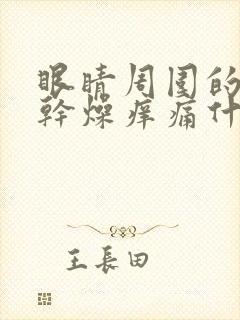 眼睛周围的
幹燥痒痛什
王長田